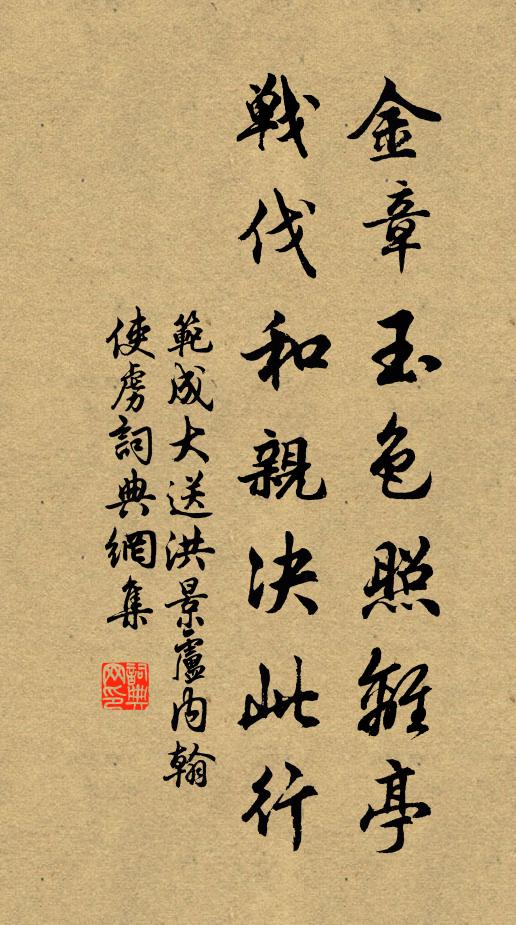 金章玉色照離亭
戦伐和親決此行
範成大送洪景盧內翰
使虜詞典網集
詞典網印